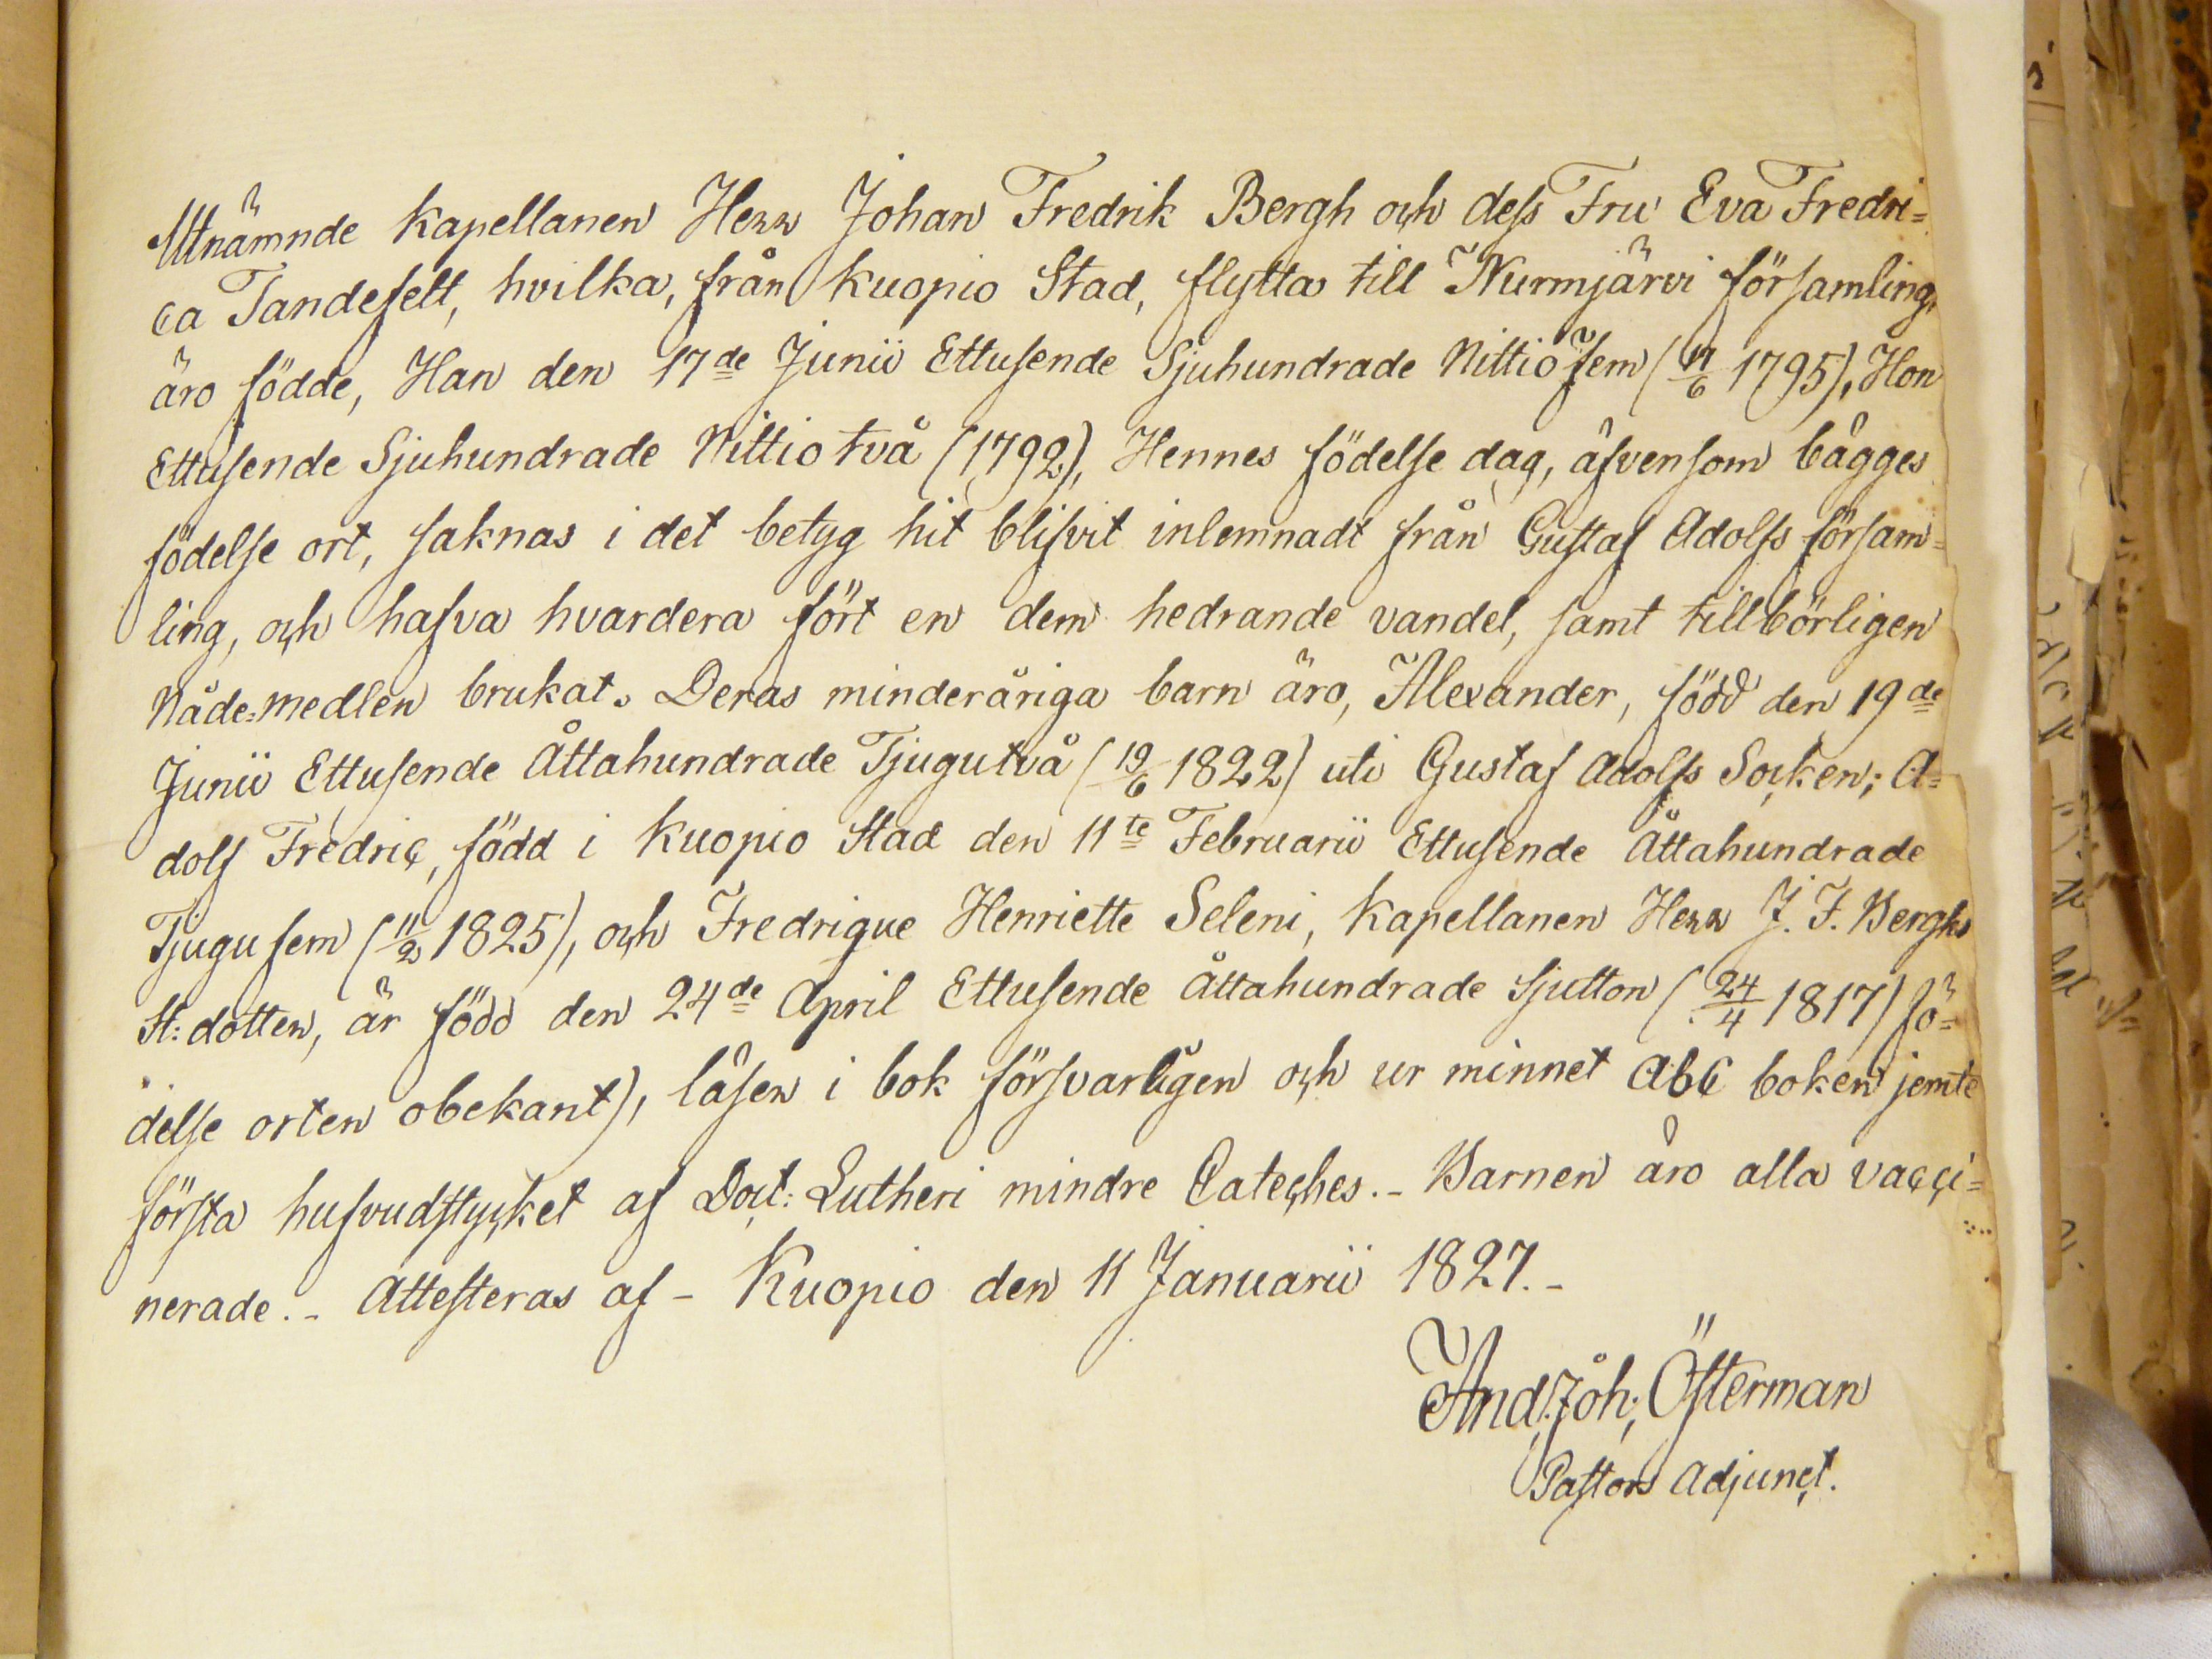 Utnämnde Kapellanen Herr Johan Fredrik Bergh och dess Fru Eva Fredri=
ca Tandefelt, hvilka, från Kuopio Stad, flytta till Nurmjärvi församling,
äro födde, Han den 17de Junii Ettusende Sjuhundrade Nittio fem (17/6 1795), Hon
Ettusende Sjuhundrade Nittio två (1792), Hennes födelse dag, äfvensom bägges
födelse ort, saknas i det betyg hit blifvit inlemnadt från Gustaf Adolfs försam=
ling, och hafva hvardera fört en dem hedrande vandel, samt tillbörligen
Nåde=medlen brukat. Deras minderåriga barn äro, Alexander, född den 19de
Junii Ettusende Åttahundrade Tjugutvå (19/6 1822) uti Gustaf Adolfs Socken; A=
dolf Fredric, född i Kuopio Stad den 11te Februarii Ettusende Åttahundrade
Tjugu fem (11/2 1825), och Fredrique Henriette Seleni, Kapellanen Herr J. F. Berghs
St: dotter, är född den 24de April Ettusende Åttahundrade Sjutton (24/4 1817) fö=
delse orten obekant), läser i bok försvarligen och ur minnet Abc boken jemte
första hufvudstycket af Doct: Lutheri mindre Cateches. - Barnen äro alla vacci=
nerade. - Attesteras af - Kuopio den 11 Januarii 1827. -
And: Joh: Österman
Pastors Adjunct.